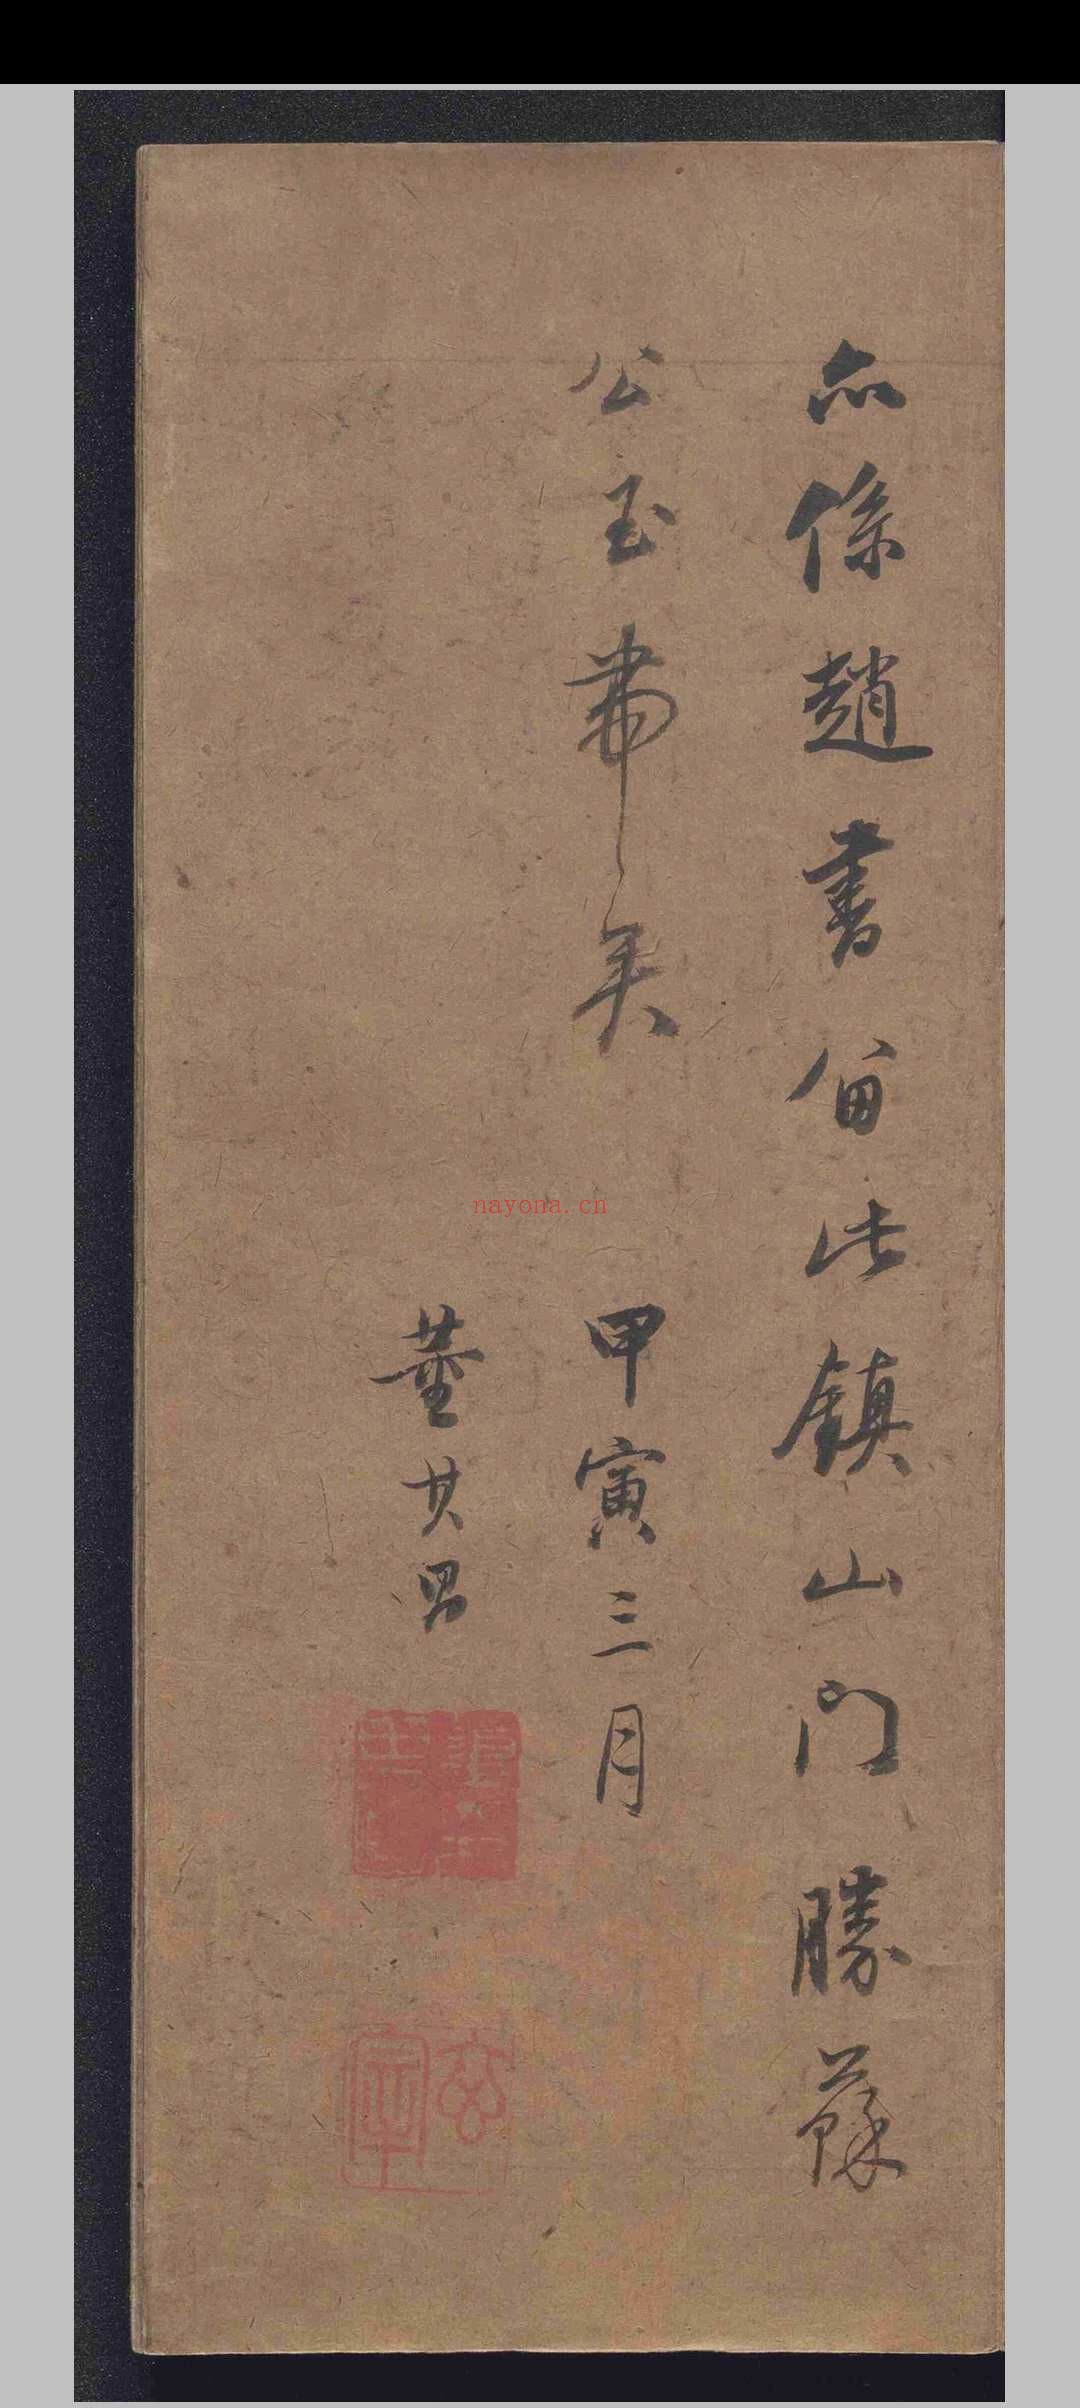 亦係趙書留此鎮山門勝蘇
公玉帶矣 甲寅三月
董其昌
玄宰
nayona.cn